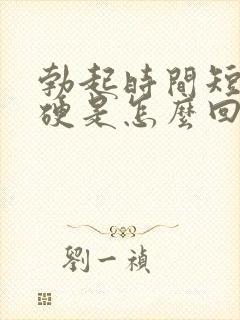 勃起時間短
硬是怎麼回
劉一禎